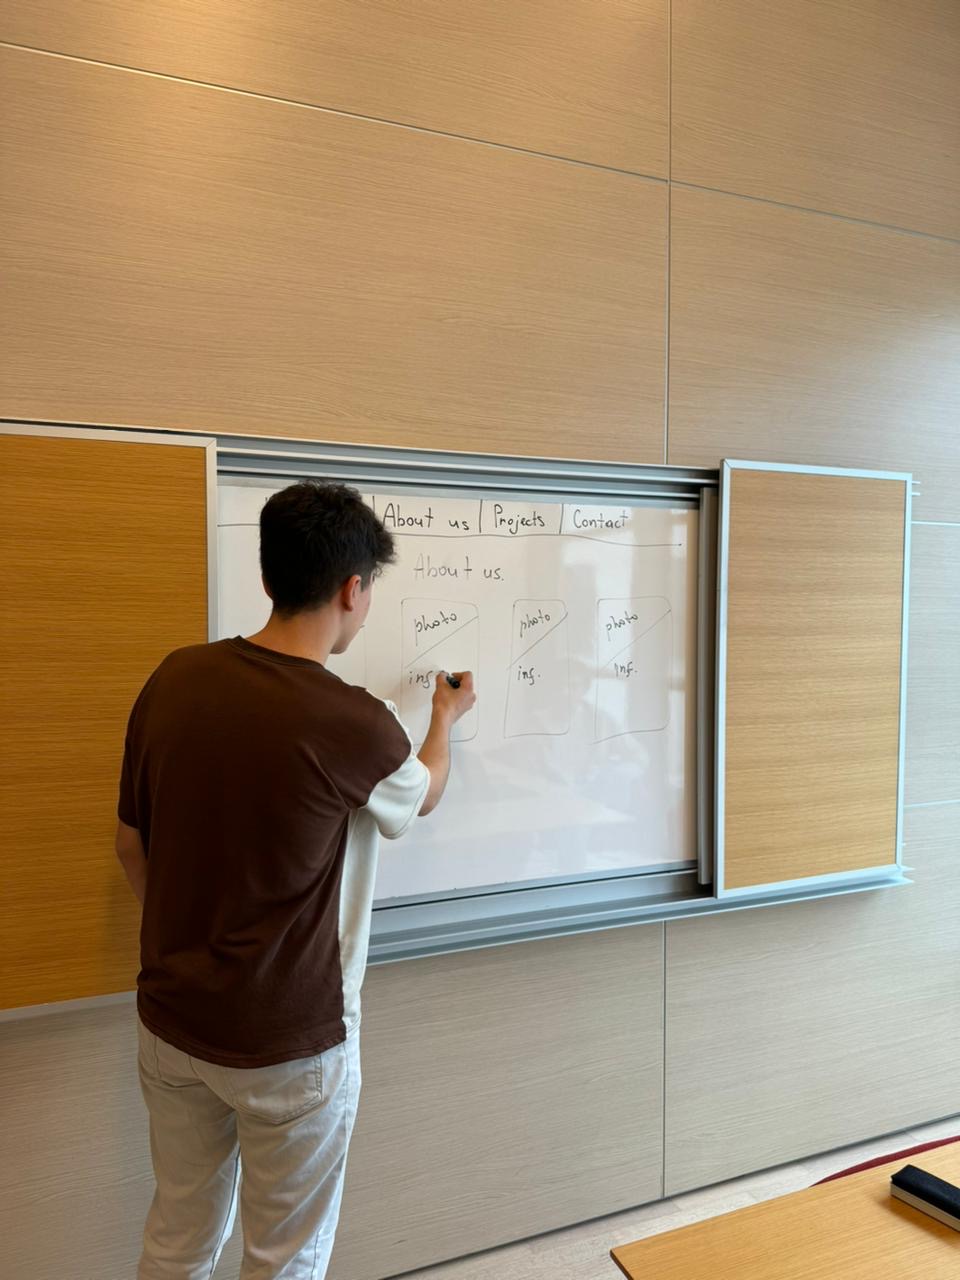 About us | Projects | Contact
About us.
photo photo photo
inf. inf. inf.